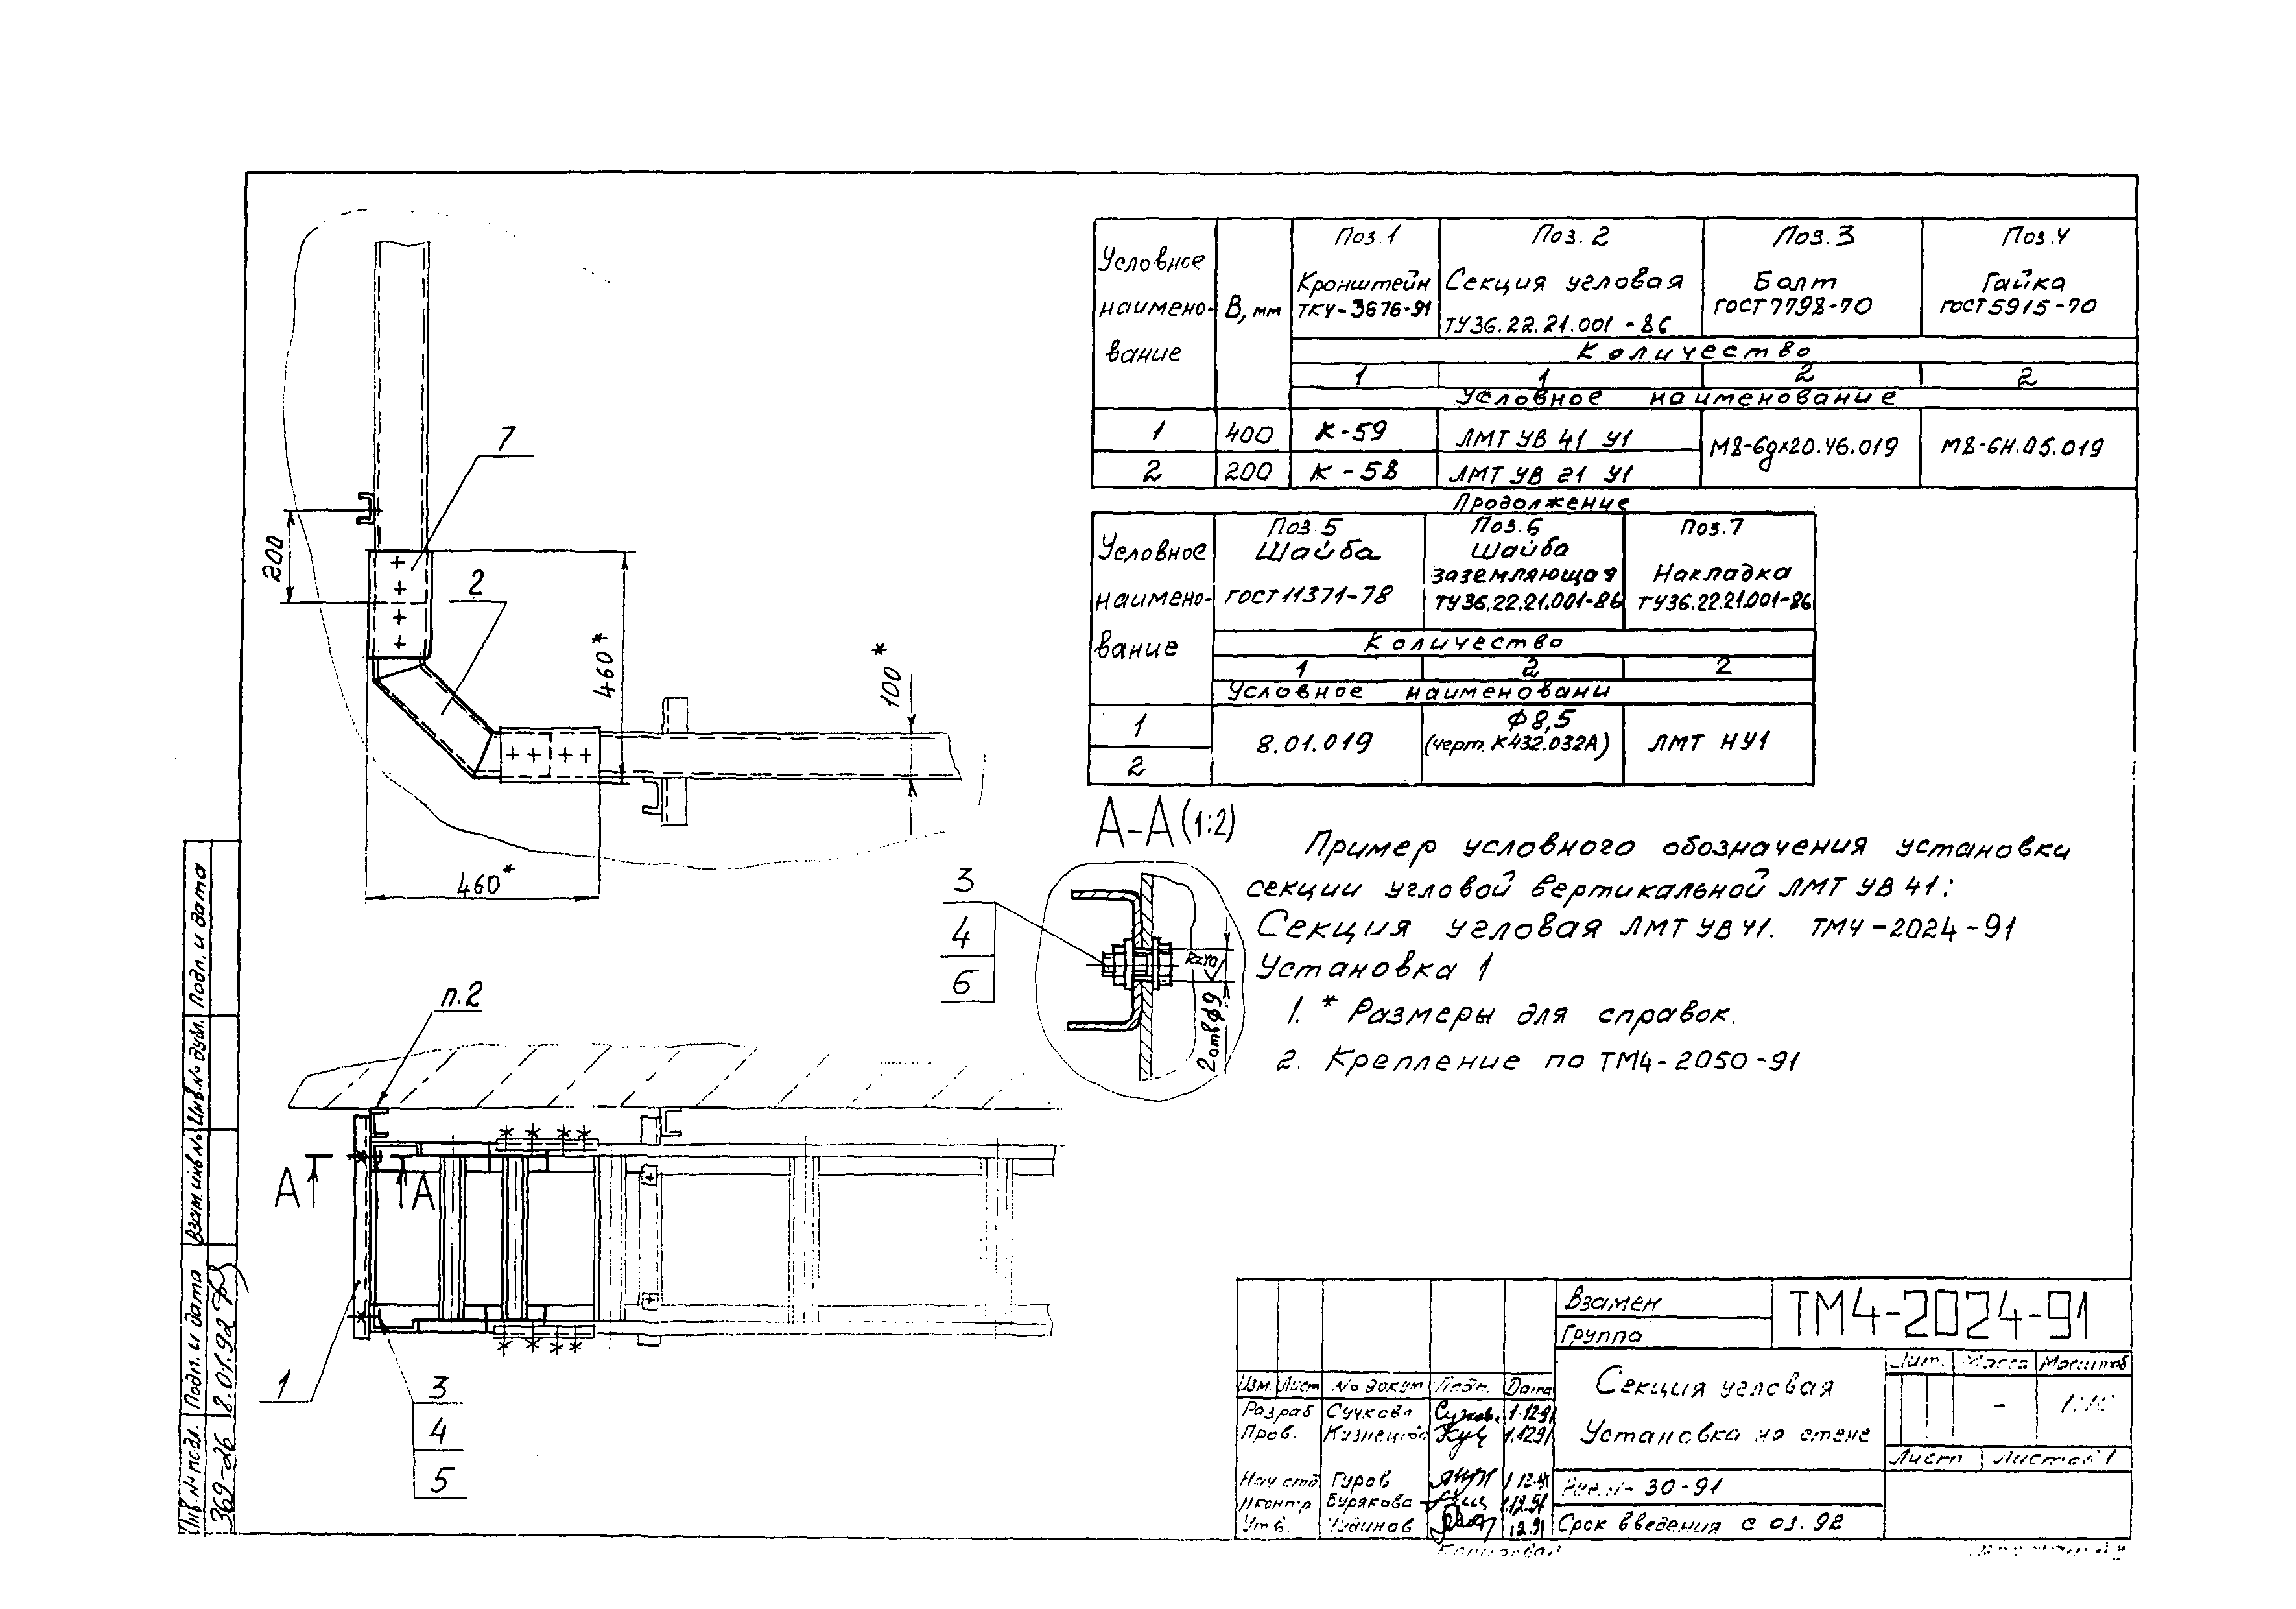 7
200
2
460*
100*
460*
Условное
наимено-
вание
В, мм
Поз.1
Кронштейн
ТК4-3676-91
Поз. 2
Секция угловая
ТУ36.22.21.001-86
Поз.3
Болт
ГОСТ7798-70
Поз.4
Гайка
ГОСТ5915-70
Количество
1 1 2 2
Условное наименование
1 400 К-59 ЛМТ УВ 41 У1 М8-6gх20.46.019 М8-6Н.05.019
2 200 К-58 ЛМТ УВ 21 У1
Продолжение
Условное
наимено-
вание
Поз.5
Шайба
ГОСТ11371-78
Поз.6
Шайба
заземляющая
ТУ36.22.21.001-86
Поз.7
Накладка
ТУ36.22.21.001-86
Количество
1 2 2
Условное наименовани
1
2
8.01.019
Ф8,5
(черт. К432.032А)
ЛМТ НУ1
А-А (1:2)
3
4
6
Rz40
2отвφ9
Пример условного обозначения установки
секции угловой вертикальной ЛМТ УВ 41:
Секция угловая ЛМТ УВ 41. ТМ4-2024-91
Установка 1
1. * Размеры для справок.
2. Крепление по ТМ4-2050-91
п.2
А А
1
3
4
5
Инв.№ подл. Подп. и дата Взам инв № Инв.№ дубл. Подп. и дата
369-26 8.01.92
Взамен
Группа
ТМ4-2024-91
Секция угловая
Установка на стене
Лит. Масса Масштаб
-
Лист Листов 1
Изм. Лист № докум Подп. Дата
Разраб Сучкова 1.12.91
Пров. Кузнецова 1.12.91
Нач отд Гуров 1.12.91
Н контр Бурякова 1.12.91
Утв. Чудинов 12.91
30-91
Срок введения с 03.92
Копировал